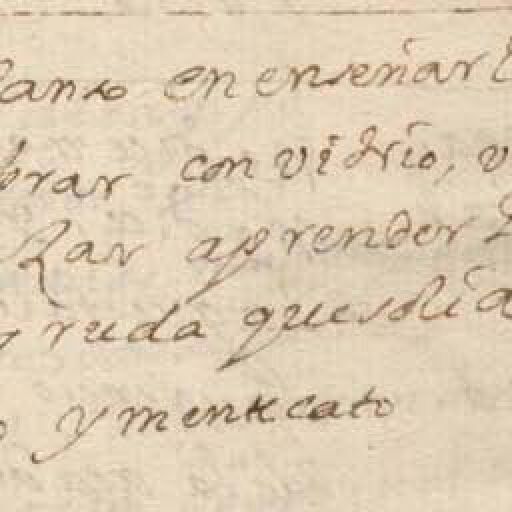 en enseñar
brar con vidrio, v
Rar aprender
y ruda quesolia
o y mentecato